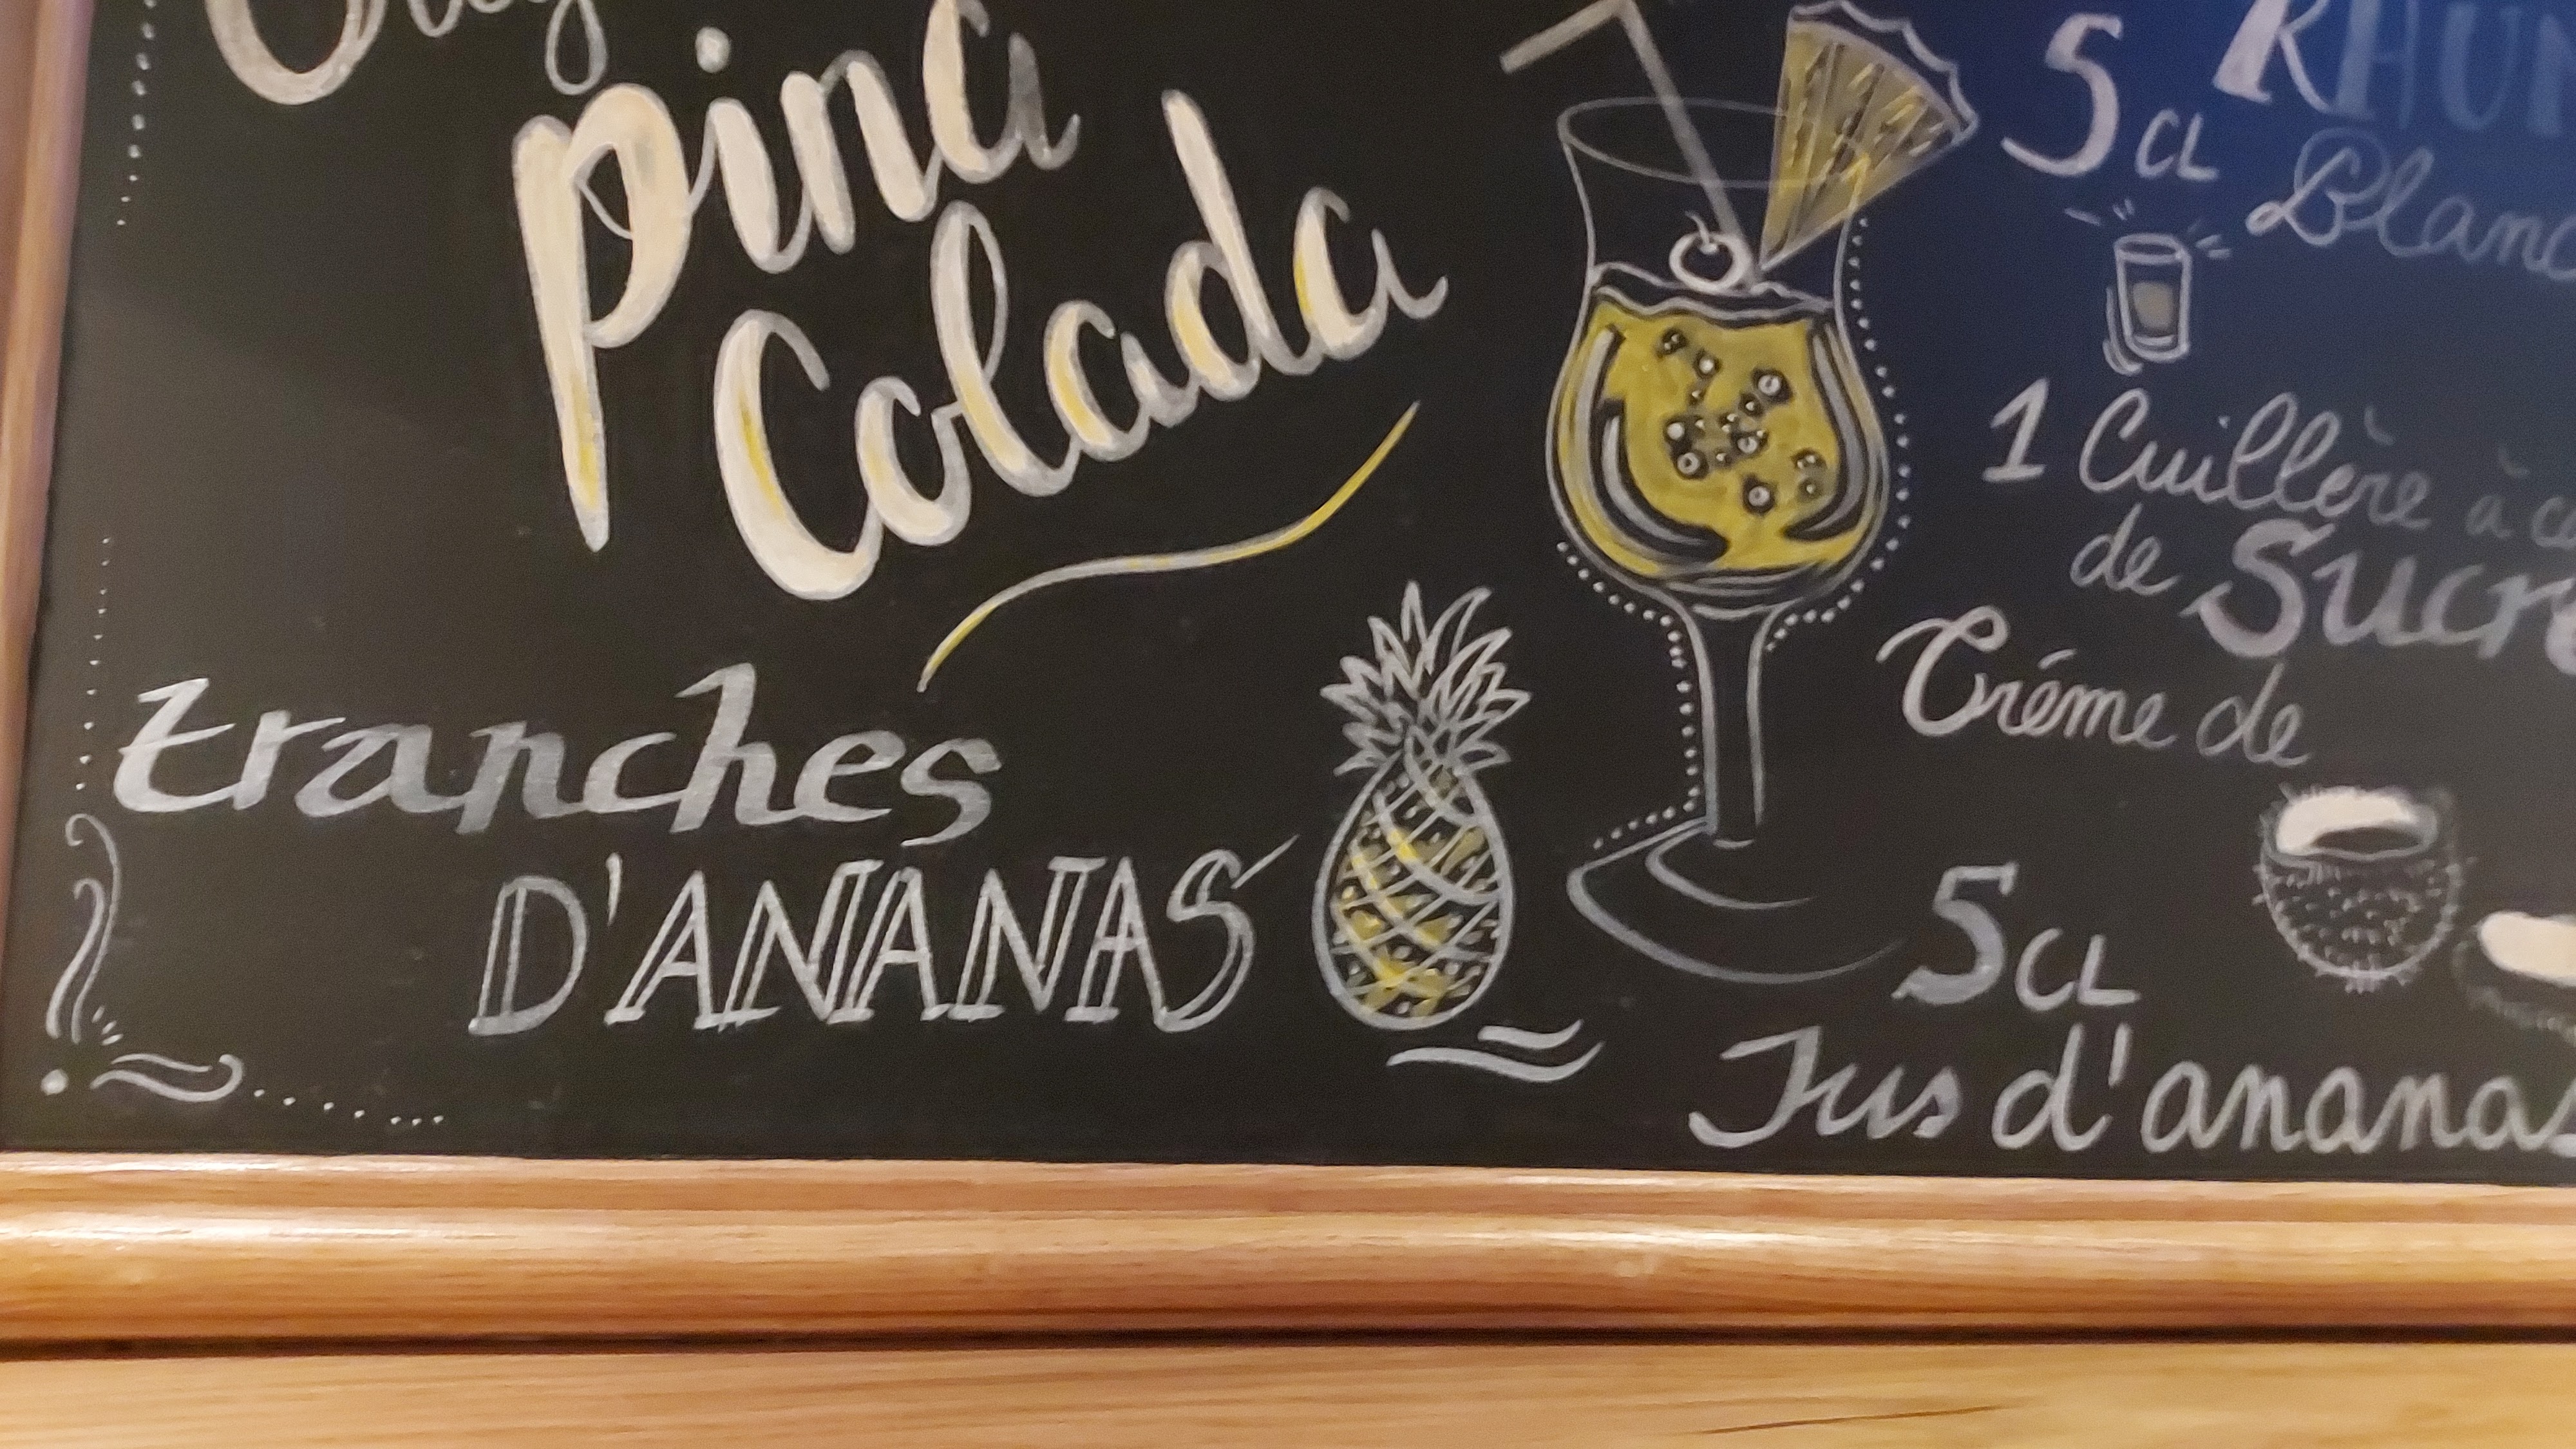 Pina
Colada
tranches
D'ANANAS
5 CL
RHUM
Blanc
1 Cuillère à
de Sucre
Créme de
5 CL
Jus d'ananas